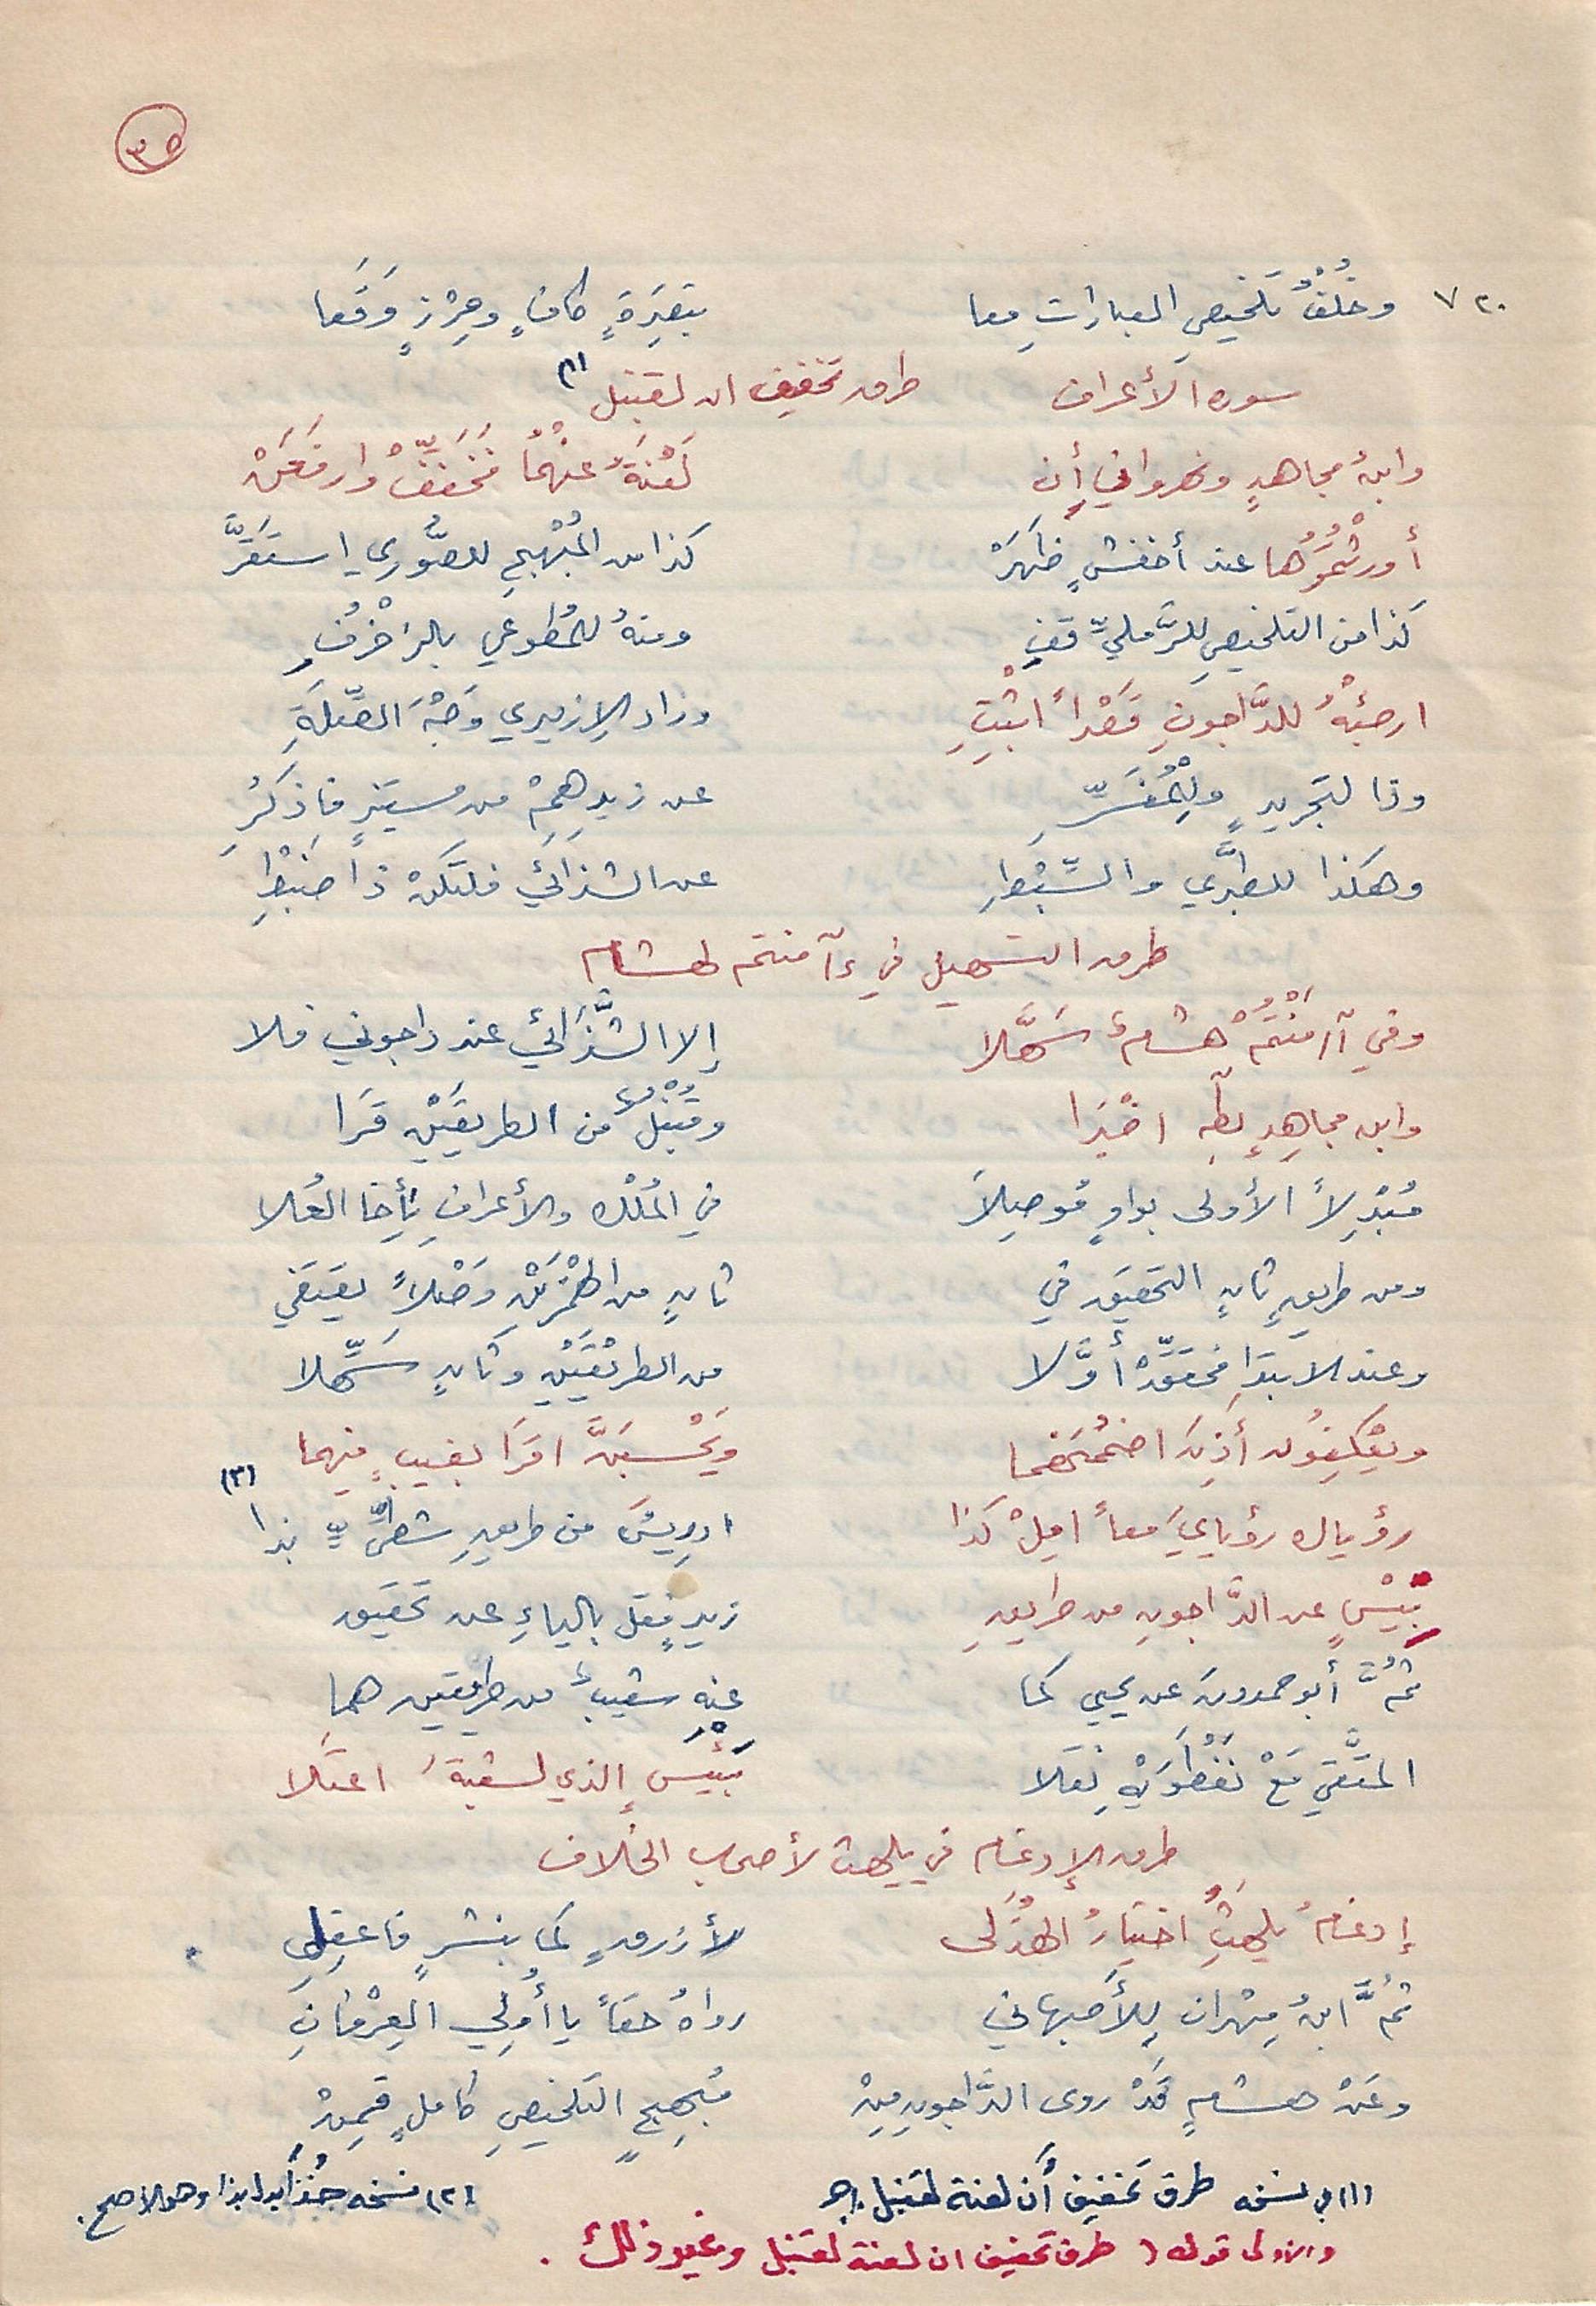 ٣٥
٧٢٠ وخُلْفُ تلخيصِ العبارات معا بتبصِرَةٍ كافٍ وحِرْزٍ وَقَعا
سورة الأعراف طرق تخفيف ان لقنبل (١)
وابنُ مجاهدٍ ونهرواني أن لَعْنَةُ عنهُمْا فخَفِّفْ وارفَعَنْ
أورثتُمُوها عند أخفشٍ ظهَرْ كذا من المُبْهِجِ للصُّوري استَقَرَّ
كذا من التلخيصِ للرَّمليِّ قفِ ومنهُ للمُطوعي بالزخْرُفِ
ارجئْهُ للدَّاجونِ قَصْراً اثْبِتِ وزاد الازميري وَجْهَ الصِّلَةِ
وذا لتجريدٍ وللمُفَسِّرِ عن زيدِهِمْ من مستنيرٍ فاذكُرِ
وهكذا للطبَّري والسِّبْطِ عن الشذائي فلتكنْ ذا ضَبْطِ
طرق التسهيل في ءآمنتم لهشام
وفي آامَنْتُمْ هشامٌ سَهَّلا إلا الشَّذَائي عند داجوني فلا
وابن مجاهدٍ بطه اخْبَرا وقُنْبُلٌ من الطريقَيْنِ قَرَا
مُبْدِلاً الأولى بواوٍ مُوصِلاَ في المُلْك والأعرافِ يأخا العُلا
ومن طريقٍ ثانٍ التحقيق في ثانٍ من الهمْزَيْنِ وَصْلاً يقتفي
وعند الابتدَا فحقِّقْ أوَّلا من الطرِيْقَيْنِ وثانٍ سَهِّلا
ويعْكِفُون أذِنَ اضمُمَنهُما ويَحْسَبَنَّ اقرَا بغيبٍ فيهما
رؤياك رؤيايَ معاً امِلْ كذا ادريسَ من طريقِ شطيٍّ بذا (٢)
بِيْسٍ عن الدَّاجونِ من طريقِ زيدٍ فقل بالياءِ عن تحقيق
ثُمَّ أبو حمدونَ عن يحيي كما عنه شعيبٌ من طريقين هما
المتَّقي مَعْ نَفْطَوَيْهِ نقلا بَيْئَسٍ الذي لشعبةَ اعتَلا
طرق الإدغام في يلهث لأصحاب الخلاف
إدغامُ يلهثْ اختيارُ الهُذَلى لأزرقٍ كما بنشرٍ فاعقِلِ
ثُمَّ ابنُ مِهْران للأصبهاني رواهُ حقاً يا أُولي العِرْفانِ
وعَنْ هشامٍ قدْ روى الدَّاجونِ مِنْ مُبهِجٍ التلخيصِ كاملٍ قمِنْ
(١) في نسخه طرق تخفيف أن لعنة لقنبل
(٢) نسخه جُنْذَا بدل بذا وهو الاصح .
والاولى قوله ( طرق تخفيف ان لعنة لقنبل وغير ذلك .